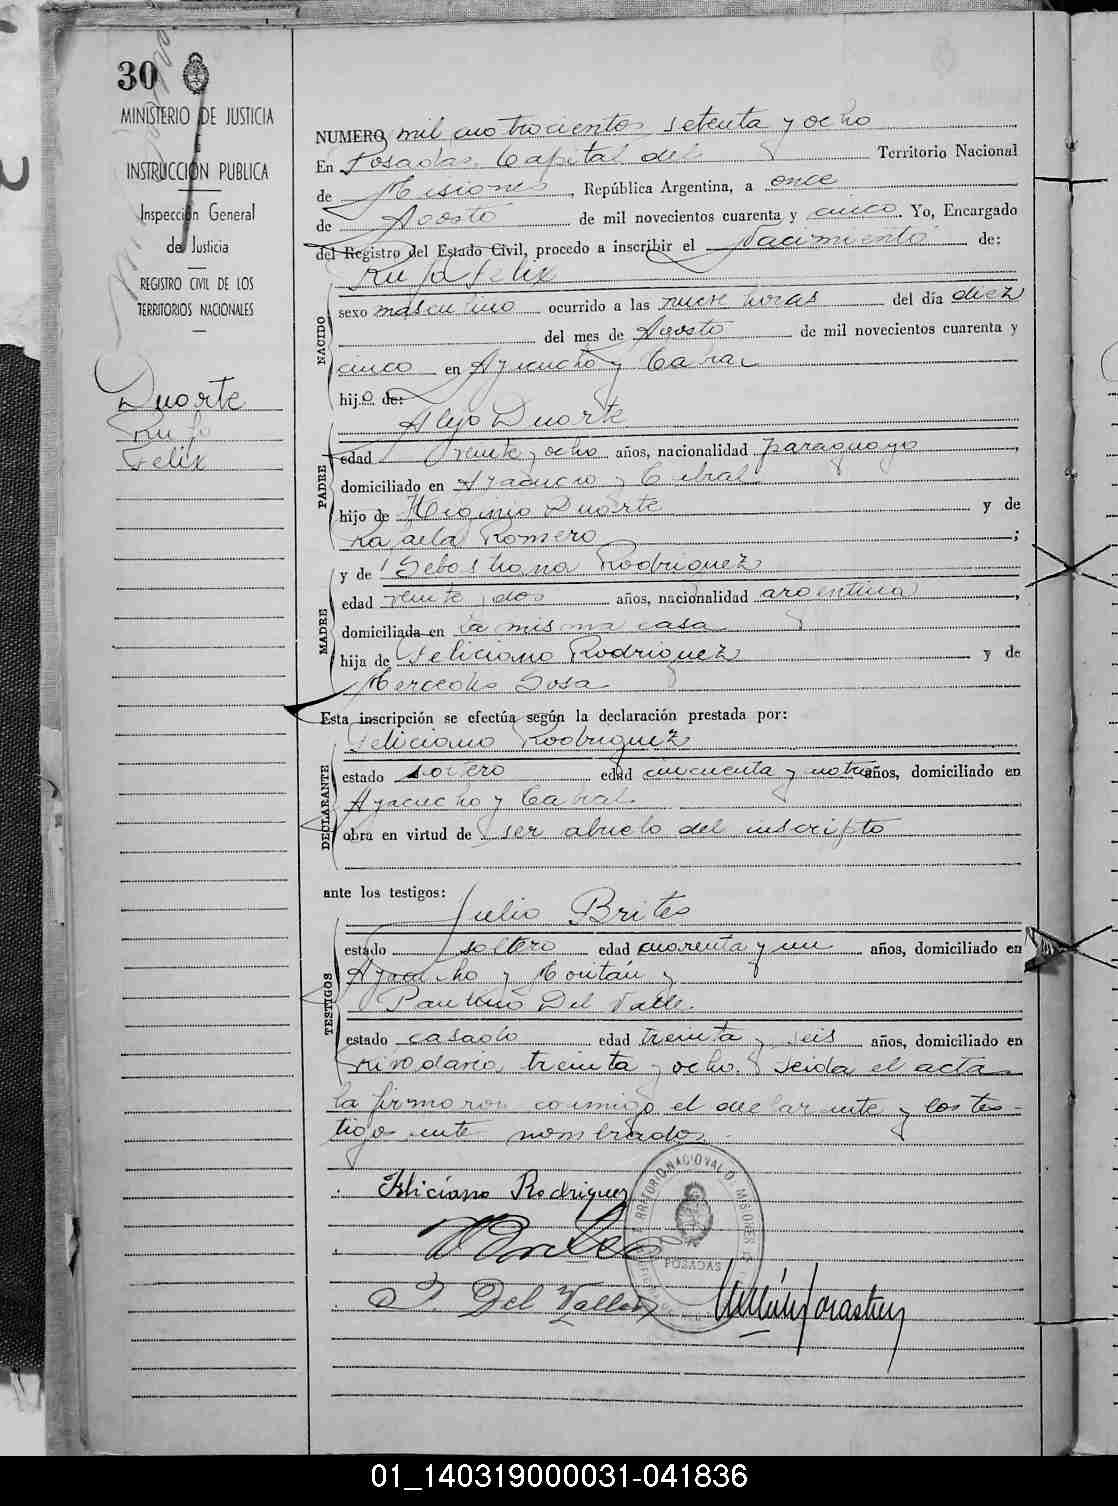 30
MINISTERIO DE JUSTICIA
E
INSTRUCCIÓN PUBLICA
Inspección General
de Justicia
REGISTRO CIVIL DE LOS
TERRITORIOS NACIONALES
Duarte
Rufo
Felix
NUMERO mil cuatrocientos setenta y ocho
En Posadas, Capital del Territorio Nacional
de Misiones, República Argentina, a once
de Agosto de mil novecientos cuarenta y cinco. Yo, Encargado
del Registro del Estado Civil, procedo a inscribir el Nacimiento de:
Rufo Felix
NACIDO
sexo masculino ocurrido a las nueve horas del día diez
del mes de Agosto de mil novecientos cuarenta y
cinco en Ayacucho y Cabral
hijo de:
Alejo Duarte
PADRE
edad veinte y ocho años, nacionalidad paraguayo,
domiciliado en Ayacucho y Cabral
hijo de Higinio Duarte y de
Rafaela Romero;
MADRE
y de Sebastiana Rodriguez
edad veinte y dos años, nacionalidad argentina,
domiciliada en la misma casa
hija de Feliciano Rodriguez y de
Mercedes Sosa
Esta inscripción se efectúa según la declaración prestada por:
Feliciano Rodriguez
DECLARANTE
estado soltero edad cincuenta y años, domiciliado en
Ayacucho y Cabral
obra en virtud de ser abuelo del inscripto
ante los testigos:
Julio Brites
TESTIGOS
estado soltero edad cuarenta y un años, domiciliado en
Ayacucho y Roritán y
Paulino Del Valle.
estado casado edad treinta y seis años, domiciliado en
Rivadavia treinta y ocho. Leida el acta
la firmaron conmigo el declarante y los tes-
tigos ante nombrados.
Feliciano Rodriguez
P. Del Valle
TERRITORIO NACIONAL D. MISIONES
POSADAS
01_140319000031-041836